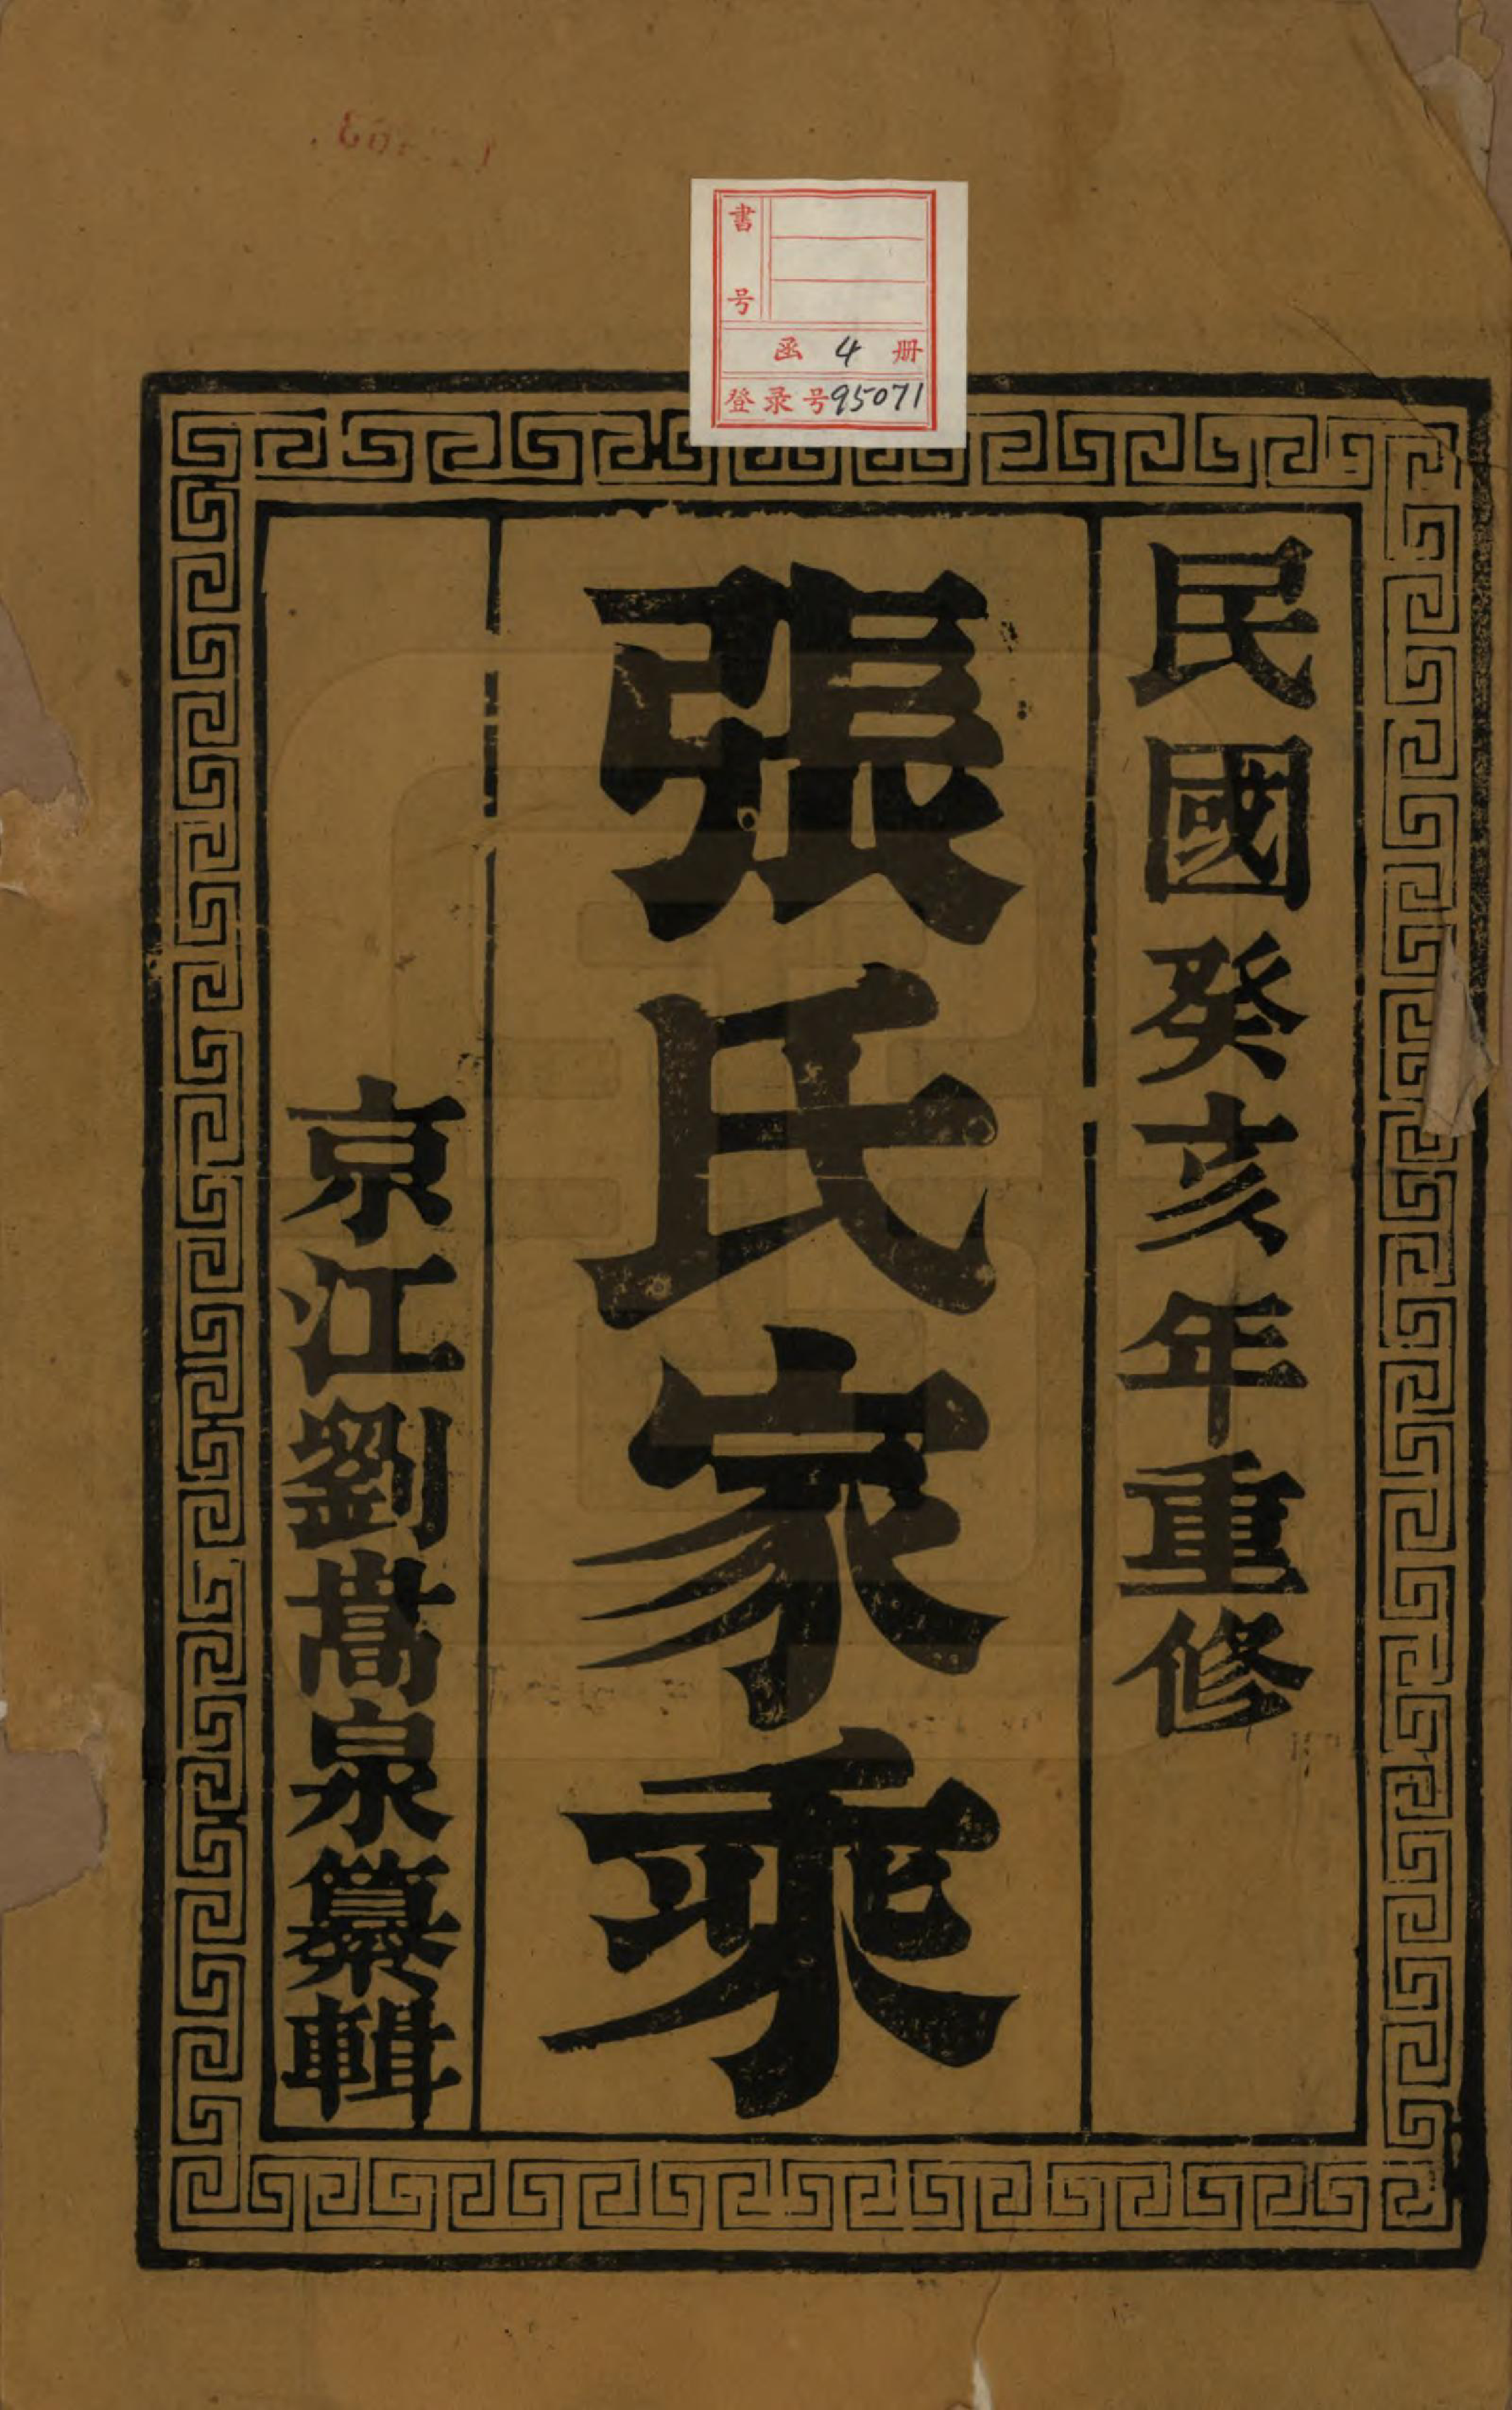 民國癸亥年重修
張氏家乘
京江劉嵩泉纂輯
書号
函 4 册
登录号95071